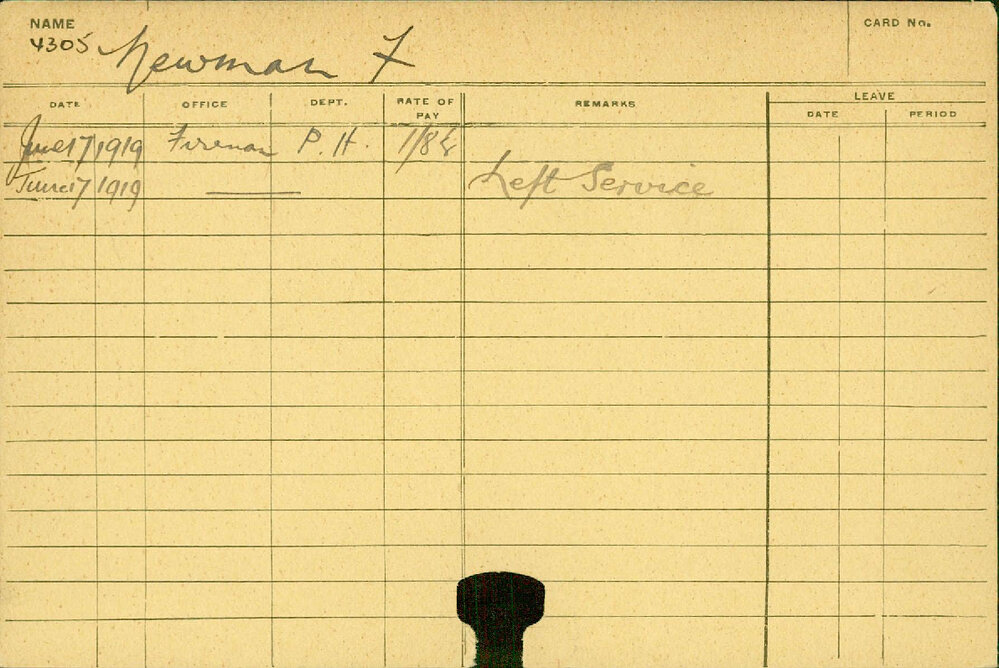 NAME
4305 Newman F
CARD No.
DATE OFFICE DEPT. RATE OF PAY REMARKS LEAVE
DATE PERIOD
June 17 1919 Fireman P.H.
June 17 1919 Left Service